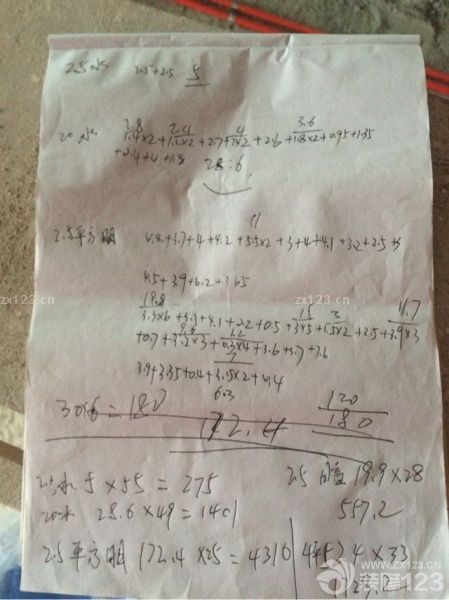 25水 25+25 5
20水 2.8
1.4×2+ 2.4
1.2×2+2.7+ 4
2×2+2.6+ 3.6
1.8×2+0.95+1.35
+2.4+4+1.8
28.6
2.5平方明 4.8+3.7+4+4.2+5.5×2+3+4+4.1+3.2+2.5+
4.5+3.9+6.2+3.65
19.8 15 3 11.7
3.3×6+3.9+4.1+2.2+0.5+3×5+1.5×2+2.5+3.9×3
9.6 1.2
+0.7+3.2×3+0.3×4+3.6+3.7+7.6
3.9+3.35+0.4+3.15×2+4.4
6.3
30×6=180 172.4 120
180
25水 5×55=275 2.5 19.9×28
20水 28.6×49=1401 557.2
2.5平方明 172.4×25=4310 4平 52.4×33
zx123.cn
www.zx123.cn
装修123